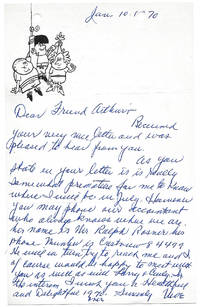 Jan. 10 - 1970
Dear Friend Arthur:
Received
your very nice letter and was
pleased to hear from you.
As you
state in your letter it is
somewhat premature for me to know
where I will be in July. However
you may phone our accountant
who always knows where we are
her name is Mrs Ralph Rosner her
phone number is 84499
in turn try to reach me and I
of course would be happy to meet with
you as much as will Larry &
the interim I wish you a Healthful
and Delightful 1970. Sincerely Moe